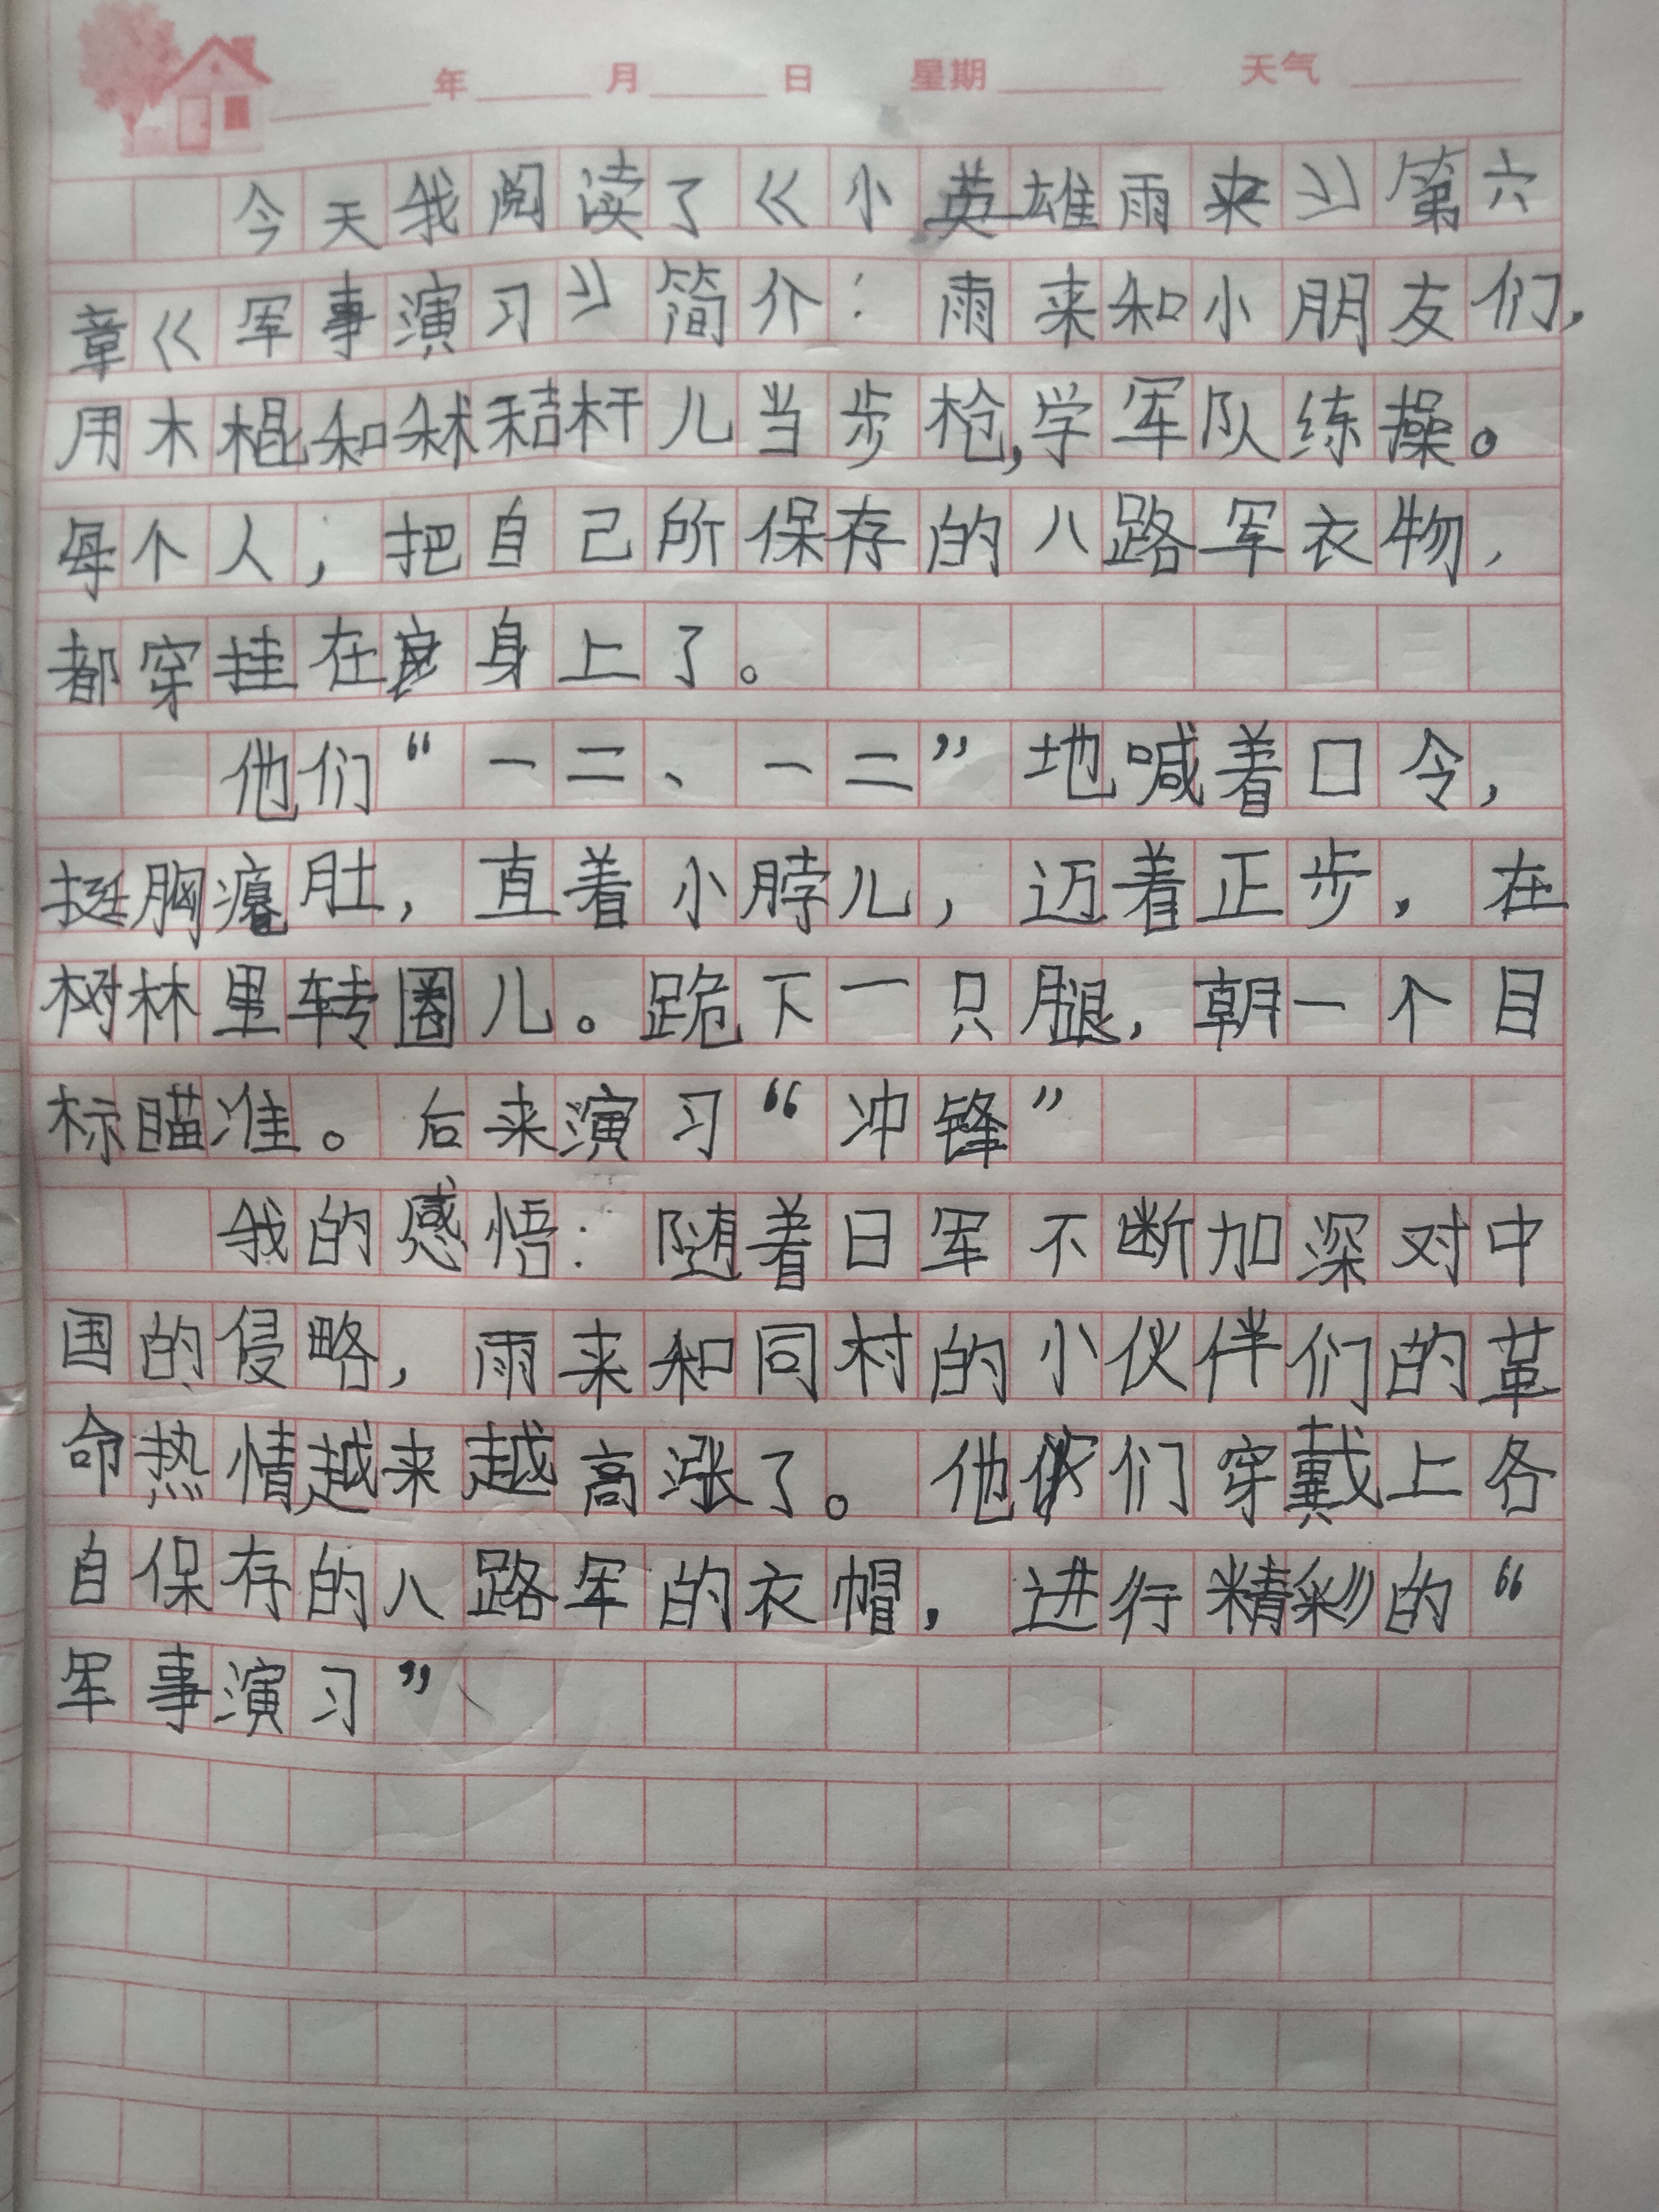 年 月 日 星期 天气
今天我阅读了《小英雄雨来》第六
章《军事演习》简介：雨来和小朋友们，
用木棍和秫秸杆儿当步枪，学军队练操。
每个人，把自己所保存的八路军衣物，
都穿挂在身上了。
他们“一二、一二”地喊着口令，
挺胸瘪肚，直着小脖儿，迈着正步，在
树林里转圈儿。跪下一只腿，朝一个目
标瞄准。后来演习“冲锋”
我的感悟：随着日军不断加深对中
国的侵略，雨来和同村的小伙伴们的革
命热情越来越高涨了。他们穿戴上各
自保存的八路军的衣帽，进行精彩的“
军事演习”